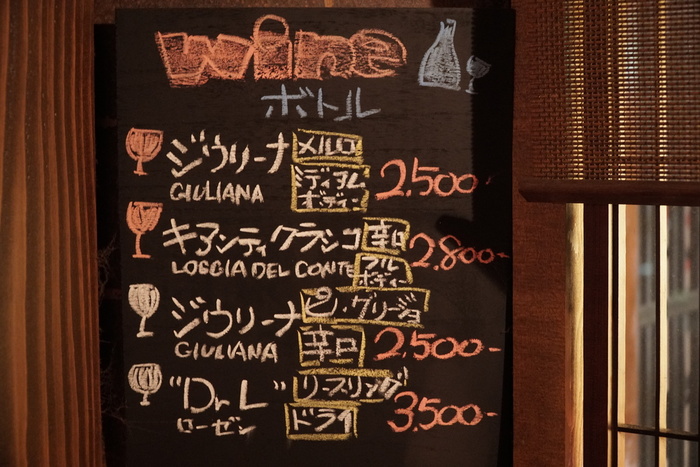 wine
ボトル
ジウリーナ メルロ
GIULIANA ミディアムボディー 2,500-
キアンティクラシコ 辛口 2,800-
LOGGIA DEL CONTE フルボディー
ジウリーナ ピノ・グリージョ
GIULIANA 辛口 2,500-
"Dr L" リースリング
ローゼン ドライ 3,500-